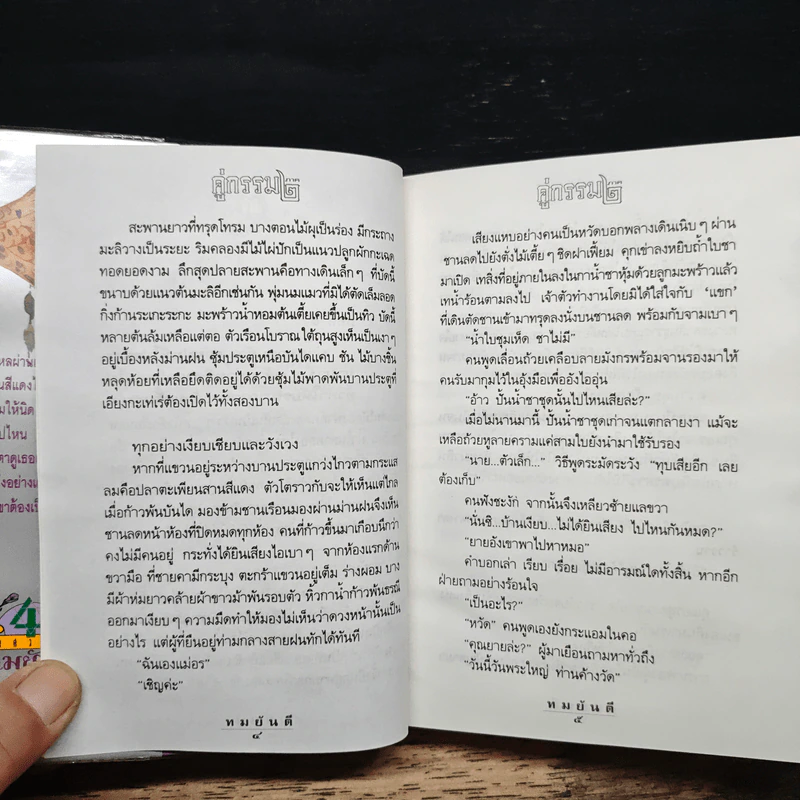 คู่กรรม ภาค ๒
สะพานยาวที่ทรุดโทรม บางตอนไม้ผุเป็นร่อง มีกระถาง
มะลิวางเป็นระยะ ริมคลองมีไม้ไผ่ปักเป็นแนวปลูกผักกะเฉด
ทอดยอดงาม ลึกสุดปลายสะพานคือทางเดินเล็กๆ ที่บัดนี้
ขนาบด้วยแนวต้นมะลิอีกเช่นกัน พุ่มนมแมวที่มิได้ตัดเล็มลอด
กิ่งก้านระเกะระกะ มะพร้าวน้ำหอมต้นเตี้ยเคยขึ้นเป็นทิว บัดนี้
หลายต้นล้มเหลือแต่ตอ ตัวเรือนโบราณใต้ถุนสูงเห็นเป็นเงาๆ
อยู่เบื้องหลังม่านฝน ซุ้มประตูเหนือบันไดแคบ ชัน ไม้บางชิ้น
หลุดห้อยที่เหลือยึดติดอยู่ได้ด้วยซุ้มไม้พาดพันบานประตูที่
เอียงกะเท่เร่ต้องเปิดไว้ทั้งสองบาน
ทุกอย่างเงียบเชียบและวังเวง
หากที่แขวนอยู่ระหว่างบานประตูแกว่งไกวตามกระแส
ลมคือปลาตะเพียนสานสีแดง ตัวโตราวกับจะให้เห็นแต่ไกล
เมื่อก้าวพ้นบันได มองข้ามชานเรือนมองผ่านม่านฝนจึงเห็น
ชานลดหน้าห้องที่ปิดหมดทุกห้อง คนที่ก้าวขึ้นมาเกือบนึกว่า
คงไม่มีคนอยู่ กระทั่งได้ยินเสียงไอเบาๆ จากห้องแรกด้าน
ขวามือ ที่ชายคามีกระบุง ตะกร้าแขวนอยู่เต็ม ร่างผอม บาง
มีผ้าห่มยาวคล้ายผ้าขาวม้าพันรอบตัว หิ้วกาน้ำก้าวพ้นธรณี
ออกมาเงียบๆ ความมืดทำให้มองไม่เห็นว่าดวงหน้านั้นเป็น
อย่างไร แต่ผู้ที่ยืนอยู่ท่ามกลางสายฝนทักได้ทันที
“ฉันเองแม่อร”
“เชิญค่ะ”
ทมยันตี
๔
คู่กรรม ภาค ๒
เสียงแหบอย่างคนเป็นหวัดบอกพลางเดินเนิบๆ ผ่าน
ชานลดไปยังตั่งไม้เตี้ยๆ ชิดฝาเฟี้ยม คุกเข่าลงหยิบถ้ำใบชา
มาเปิด เทสิ่งที่อยู่ภายในลงในกาน้ำชาหุ้มด้วยลูกมะพร้าวแล้ว
เทน้ำร้อนตามลงไป เจ้าตัวทำงานโดยมิได้ใส่ใจกับ ‘แขก’
ที่เดินตัดชานเข้ามาทรุดลงนั่งบนชานลด พร้อมกับจามเบาๆ
“น้ำใบชุมเห็ด ชาไม่มี”
คนพูดเลื่อนถ้วยเคลือบลายมังกรพร้อมจานรองมาให้
คนรับมากุมไว้ในอุ้งมือเพื่ออังไออุ่น
“อ้าว ปั้นน้ำชาชุดนั้นไปไหนเสียล่ะ?”
เมื่อไม่นานมานี้ ปั้นน้ำชาชุดเก่าจนแตกลายงา แม้จะ
เหลือถ้วยหูลายครามแค่สามใบยังนำมาใช้รับรอง
“นาย...ตัวเล็ก...” วิธีพูดระมัดระวัง “ทุบเสียอีก เลย
ต้องเก็บ”
คนฟังชะงัก จากนั้นจึงเหลียวซ้ายแลขวา
“นั่นซิ...บ้านเงียบ...ไม่ได้ยินเสียง ไปไหนกันหมด?”
“ยายอังเขาพาไปหาหมอ”
คำบอกเล่า เรียบ เรื่อย ไม่มีอารมณ์ใดทั้งสิ้น หากอีก
ฝ่ายถามอย่างร้อนใจ
“เป็นอะไร?”
“หวัด” คนพูดเองยังกระแอมในคอ
“คุณยายล่ะ?” ผู้มาเยือนถามหาทั่วถึง
“วันนี้วันพระใหญ่ ท่านค้างวัด”
ทมยันตี
๕